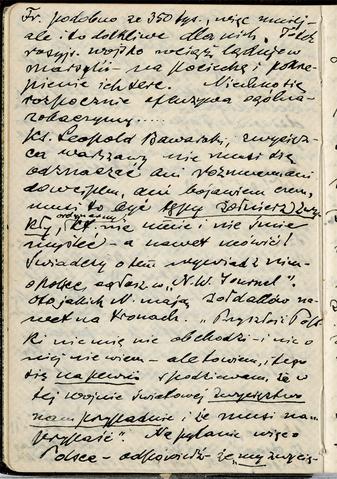 Fr. podobno ze 350 tys., więc mniej –
ale i to dotkliwe dla nich. Także
rosyjs. wojsko wciąż ląduje w
Marsylii – na pociechę i pokrze-
pienie ich serc. Niechno się
rozpocznie ofenzywa ogólna –
zobaczymy.....
Ks. Leopold Bawarski, zwycięz-
ca Warszawy nie musi się
odznaczać ani rozumem ani
dowcipem, ani bojaniem
musi to być tępy żołnierz zwy-
kły, ordynarny, co nie umie i nie śmie
myśleć – a nawet mówić!
Świadczy o tem wywiad z nim
o Polsce, ogłosz. w „N.W. Journal".
Oto jakich N. mają żołdaków na-
wet na tronach. „Przyszłość Pols-
ki nic mię nie obchodzi – i nic o
niej nie wiem – ale to wiem, i tego
się na pewno spodziewam, że w
tej wojnie światowej zwycięstwo
nam przypadnie i że musi nam
przypaść". Na pytanie więc o
Polsce – odpowiedź – że „my zwycię-